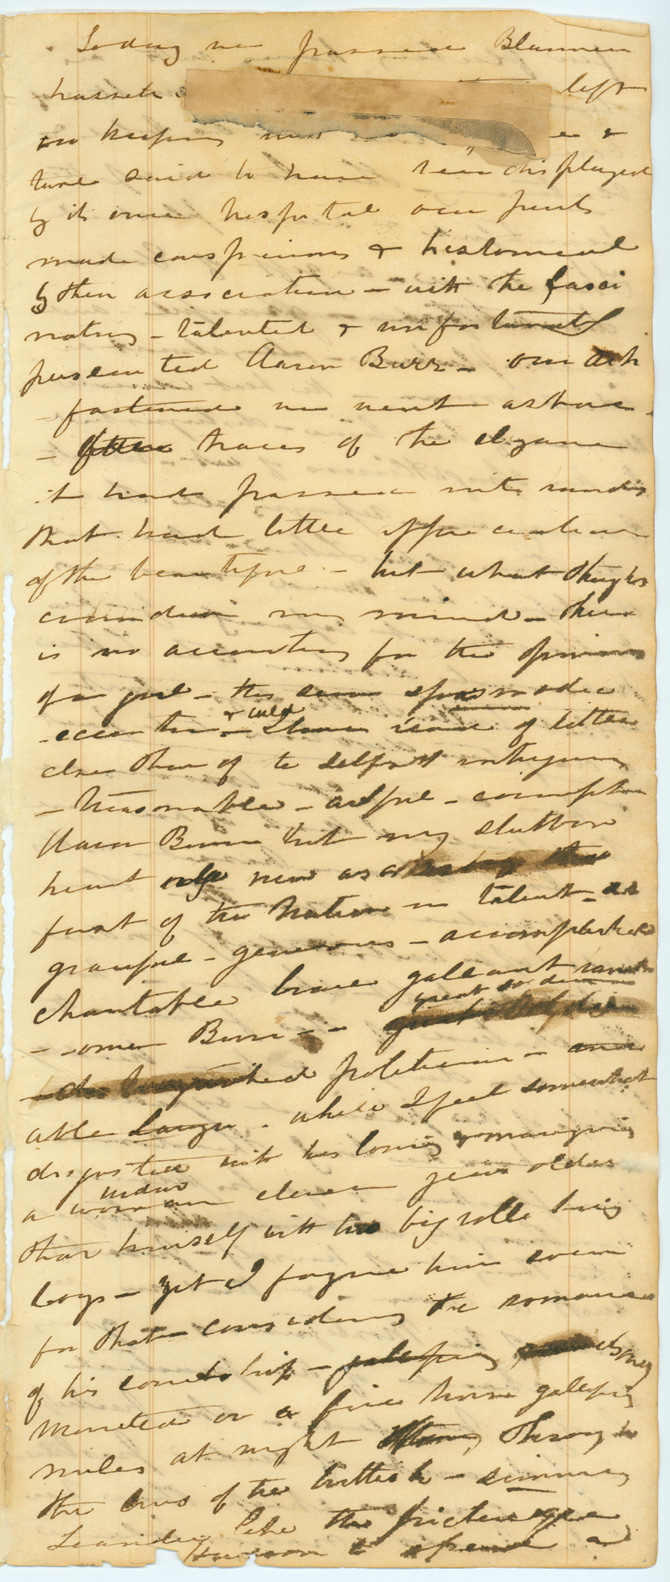 Today we passed Blanner
hassett left
on keeping
ture said to have been displayed
by its once hospital
made conspicuous & historical
by their association - with the fasci
nating - talented & unfortunately
persecuted Aaron Burr - our
fastened we went ashore -
- traces of the elegance
it had passed into hands
that had little appreciation
of the beautiful - but what thoughts
crowded in my mind - there
is no accounting for the opinions
of a girl - the seem spasmodic
eccentric & wild - I have read of little
else than of the selfish intriguing
- treasonable - artful - corrupt
Aaron Burr but my stubborn
heart only as
first of the Nation in talent - as
graceful - generous - accomplished
charitable brave gallant
Burr - - great
politician -
able Lawyer - while I feel somewhat
disgusted with his loving & marrying
a widow eleven years older
than himself with two big
boys - yet I forgive him even
for that - considering the romance
of his courtship - galloping
mounted on a fine horse galloping
miles at night through
the lines of the British - swimming
Leander like the
Hudson to spend a